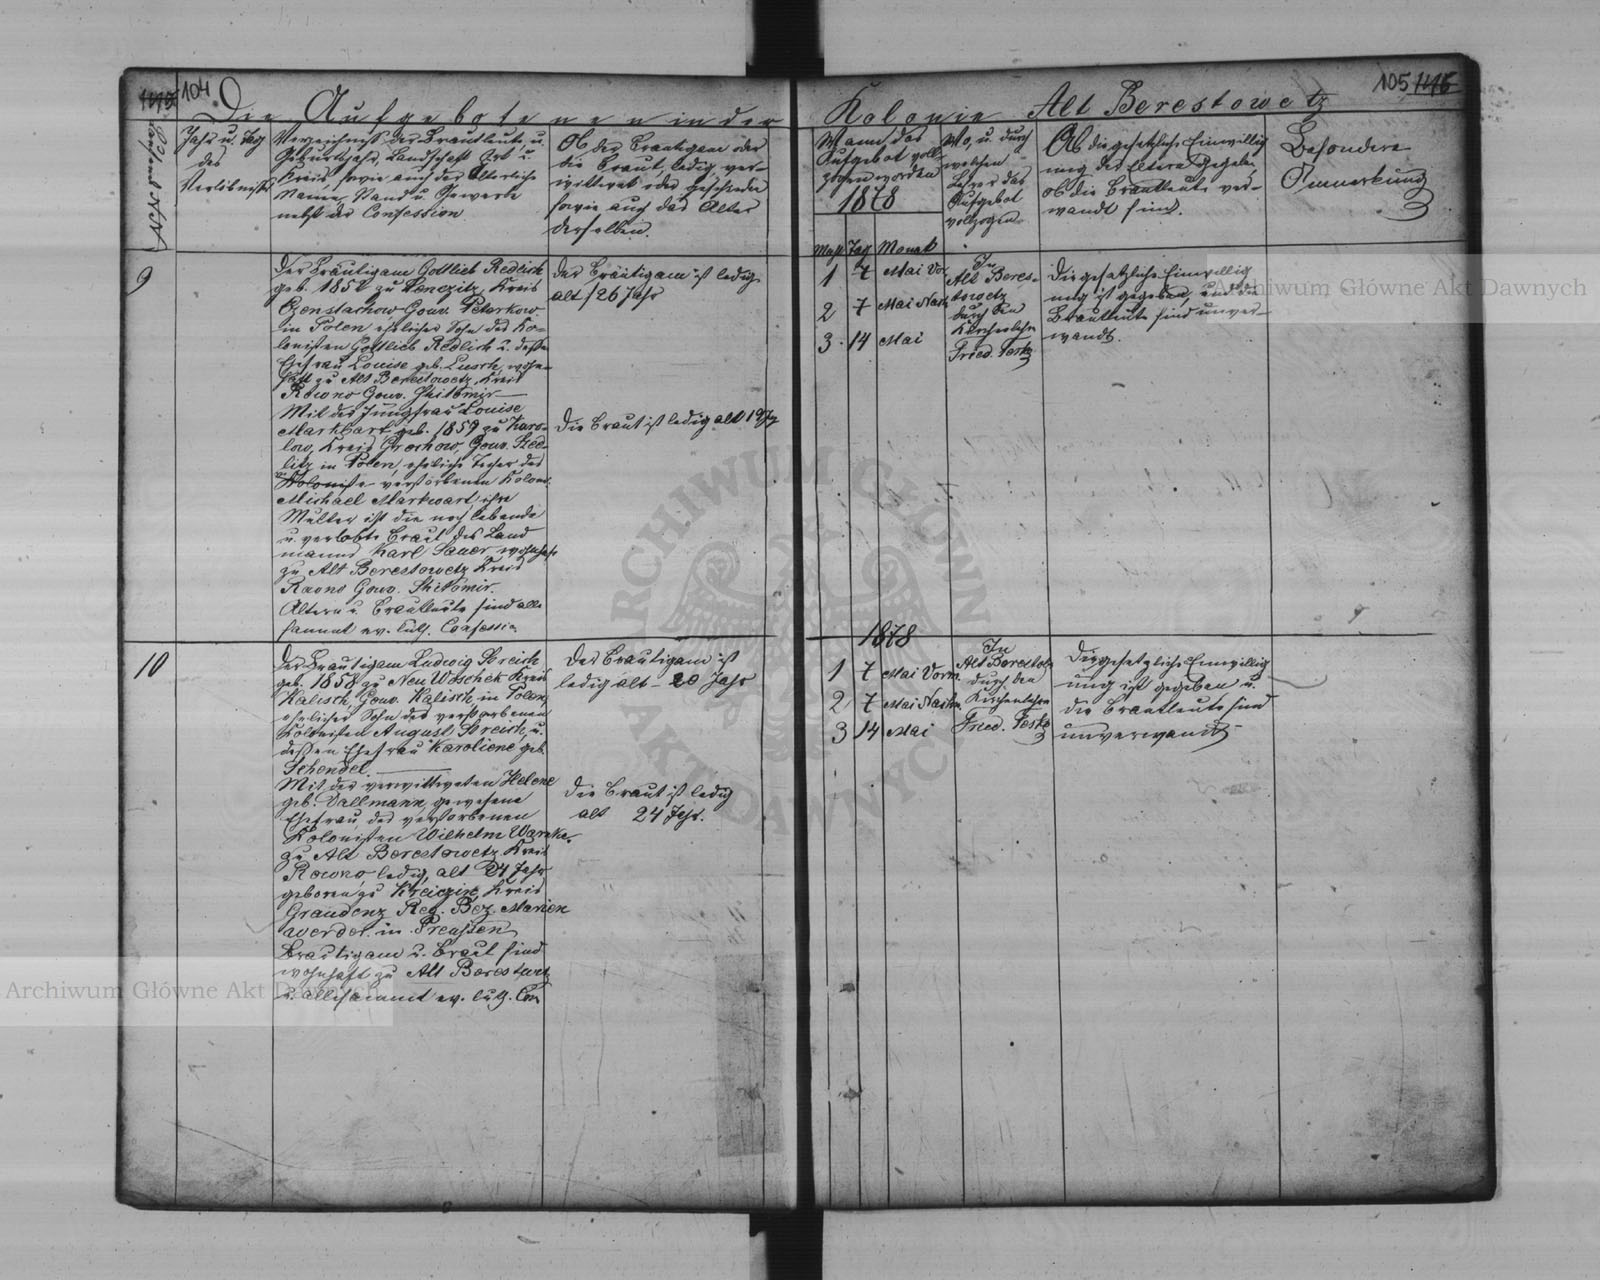 104
Die Aufgebotenen in der
Jahr u. Tag
des
Verlöbnisses
Verzeichniß der Brautleute, u.
Geburtsjahr, Landschaft Ort u.
Kreis sowie auch der Älterliche
Namen, Stand u. Gewerbe
nebst der Confession
Ob der Bräutigam oder
die Braut, ledig, ver-
wittwet oder geschieden
sowie auch das Alter
derselben.
9
Der Bräutigam Gottlieb Redlich
geb. 1852 zu Kreis
Czenstachow Gouv. Peterkow
in Polen, ehelicher Sohn des Ko-
lonisten Gottlieb Redlich u. dessen
Ehefrau Louise geb. wohn-
haft zu Alt Berestowetz, Kreis
Rowno Gouv. Shitomir
Mit der Jungfrau Louise
Markwart geb. 1859 zu Karo-
low, Kreis Grochow, Gouv. Sied-
litz in Polen, eheliche Tochter des
verstorbenen Kolonist
Michael Markwart, ihre
Mutter ist die noch lebende
u. verlobte Braut des Land
manns Karl Sauer, wohnhaft
zu Alt Berestowetz Kreis
Rowno Gouv. Shitomir.
Ältern u. Brautleute sind alle
sammt ev. luth. Confession
der Bräutigam ist ledig
alt 26 Jahr
die Braut ist ledig alt 19 J
10
Der Bräutigam Ludwig Streich
geb. 1858 zu Neu Kreis
Kalisch, Gouv. Kalisch, in Polen,
ehelicher Sohn des verstorbenen
Kolonisten August Streich, u.
dessen Ehefrau Karoliene geb.
Schendel.
Mit der verwittweten Helene
geb. Dallmann, gewesene
Ehefrau des verstorbenen
Kolonisten Wilhelm Warnke
zu Alt Berestowetz Kreis
Rowno ledig, alt 24 Jahr
geboren zu Kreis
Graudenz Reg. Bez. Marien
werder in Preussen
Bräutigam u. Braut sind
wohnhaft zu Alt Berestowetz
u. allesammt ev. luth. Con
Der Bräutigam ist
ledig alt - 20 Jahr
Die Braut ist ledig
alt 24 Jahr.
105
Kolonie Alt Berestowetz
Wann das
Aufgebot voll-
zogen worden
1878
Tag Monat
Wo, u. durch
welchen
das
Aufgebot
vollzogen
Ob die gesetzliche Einwillig
ung der Eltern gegeben
ob die Brautleute ver-
wandt sind.
Besondere
Anmerkung
1 7 Mai Vor
2 7 Mai Nach
3 14 Mai
In
Alt Beres-
towetz
durch den
Kirchenlehr
Fried.
Die gesetzliche Einwillig
ung ist gegeben, und die
Brautleute sind unver-
wandt.
1878
1 7 Mai Vorm.
2 7 Mai Nachm.
3 14 Mai
In
Alt Berestow
durch den
Kirchenlehrer
Fried.
Die gesetzliche Einwillig
ung ist gegeben u.
die Brautleute sind
unverwandt
Archiwum Główne Akt Dawnych
Archiwum Główne Akt Dawnych
ARCHIWUM GŁÓWNE
AKT DAWNYCH